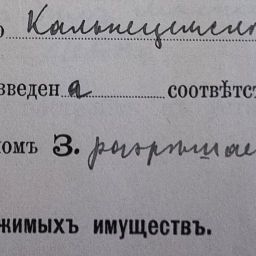 о Кальнецемск
зведен а соотвѣтс
омъ 3. разрѣшае
жимыхъ имуществъ.